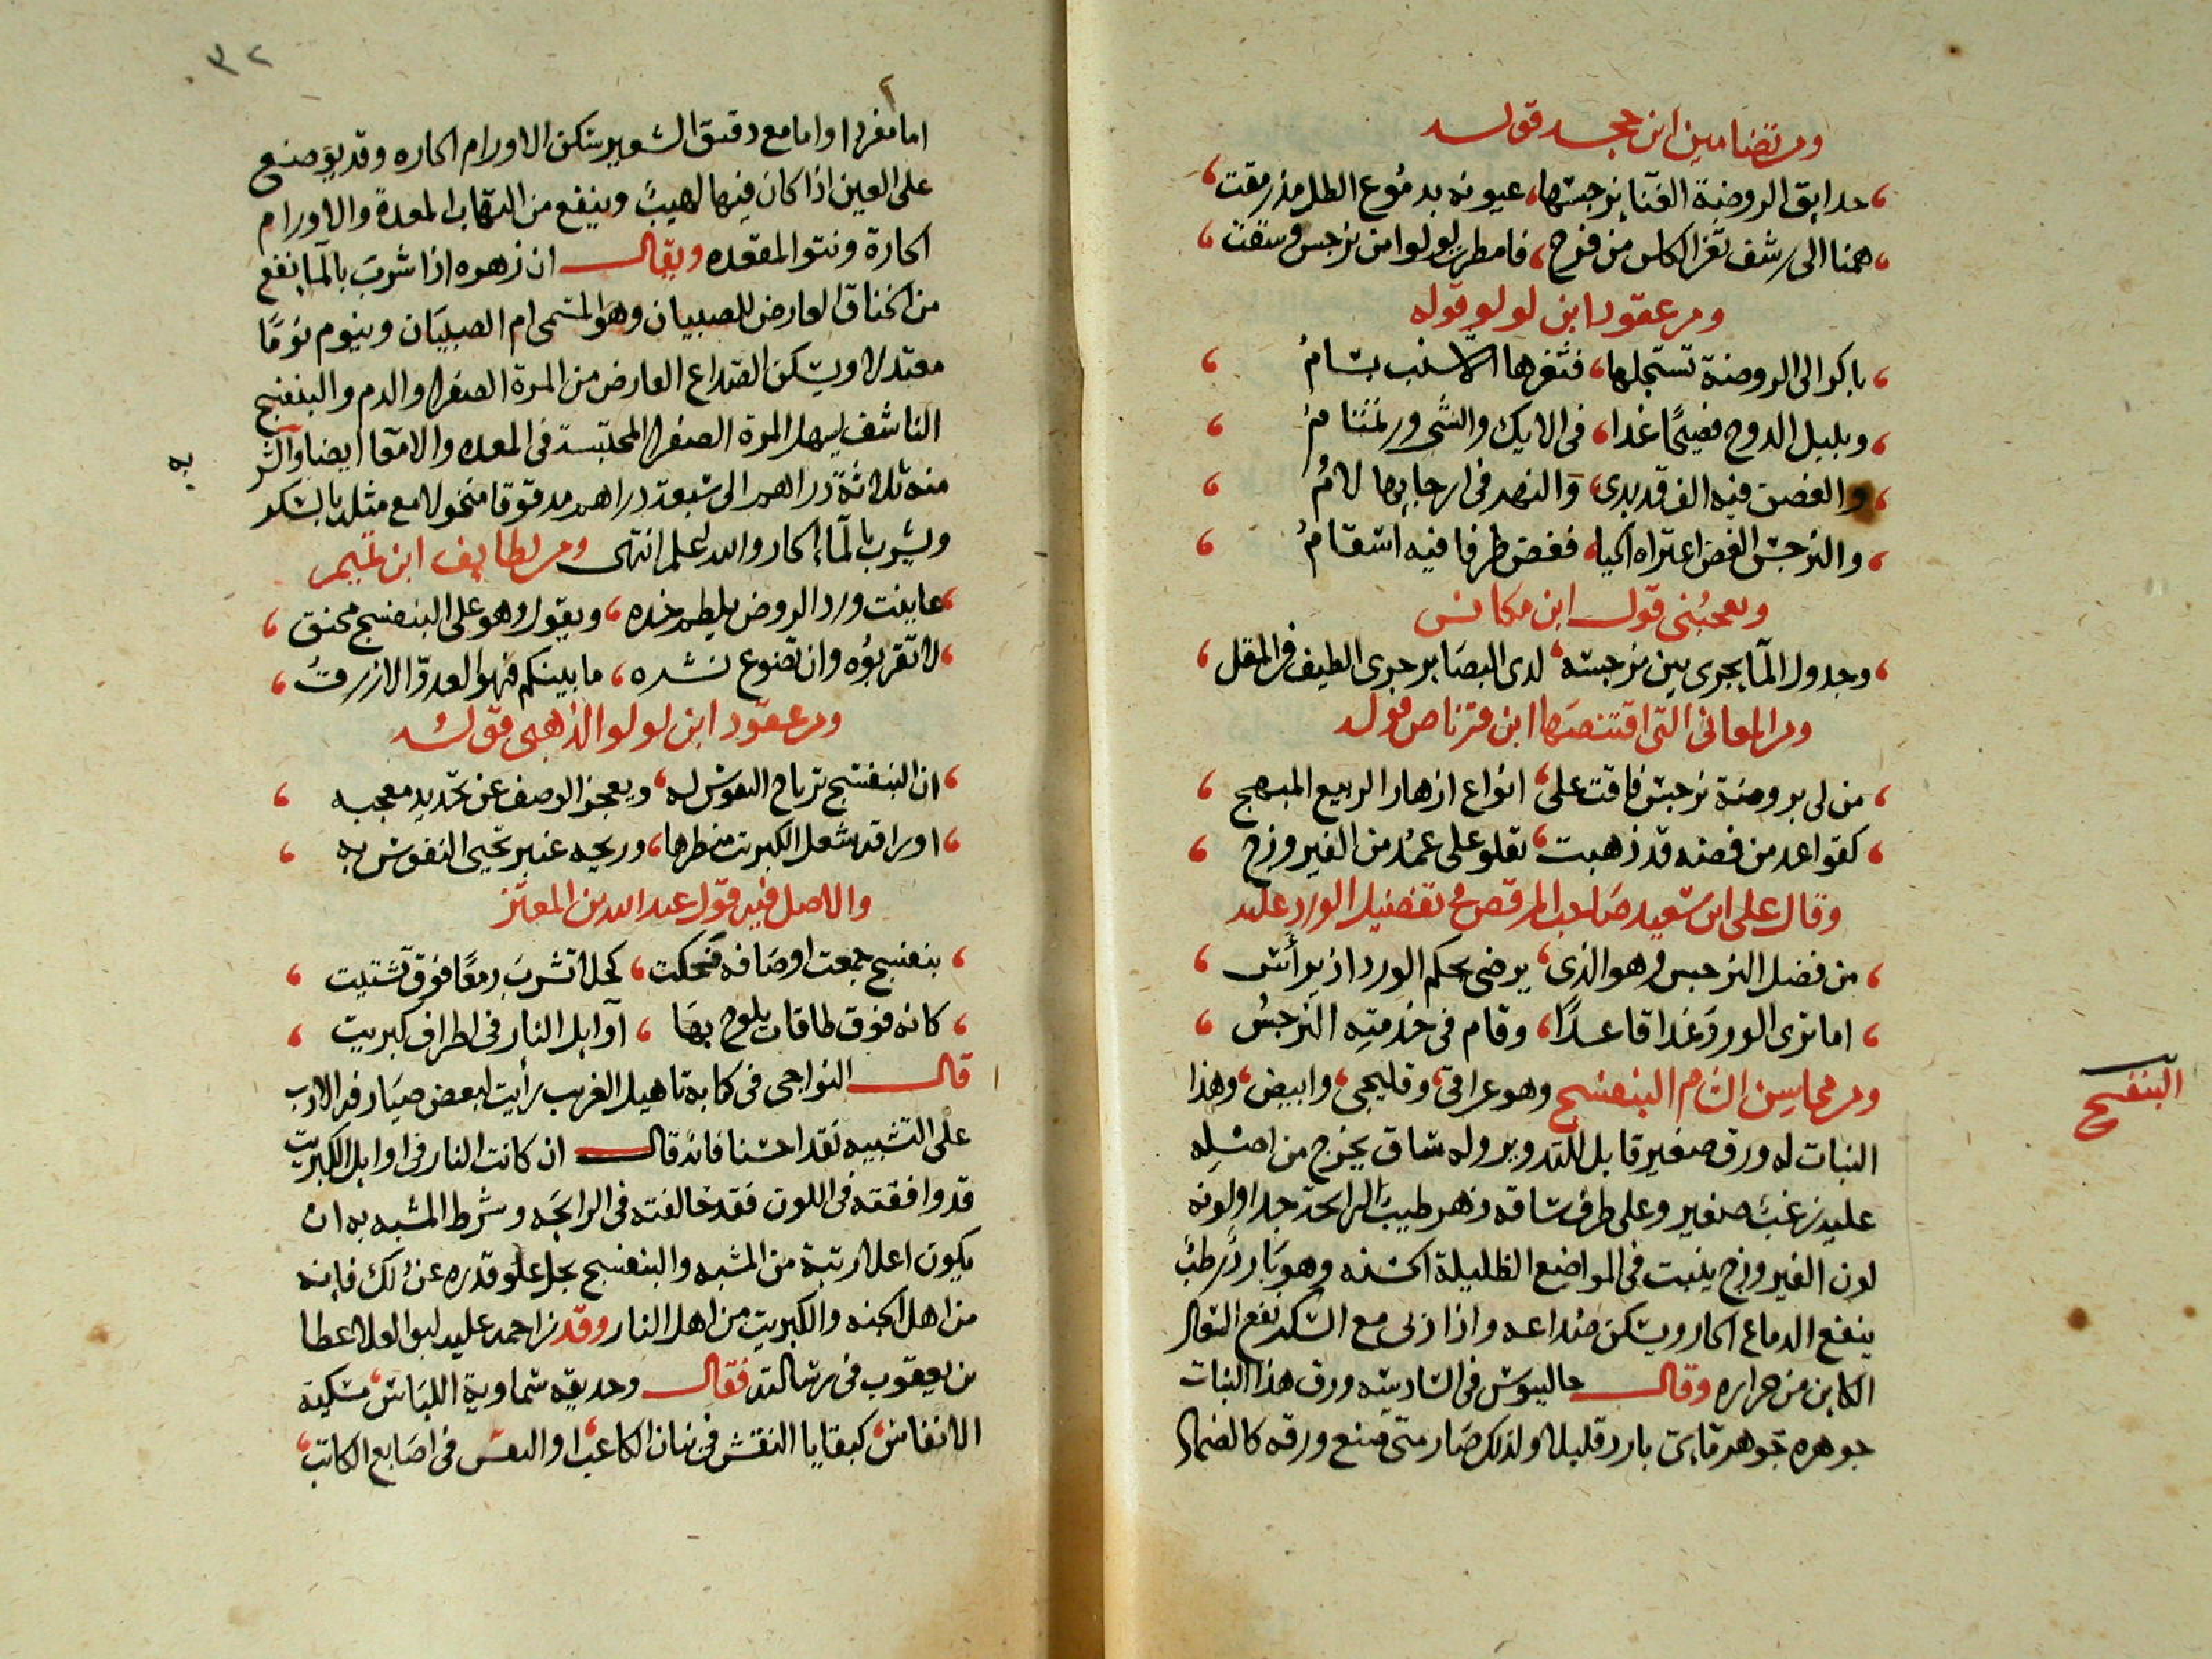 ومن تضامين ابن حجه قوله
حدايق الروضة الغنا نرجسها، عيونه بدموع الطل مذ رمقت
همنا الى رشف ثغر الكاس من فرح، فامطرت لولوا من نرجس وسقت
ومن عقود ابن لولو قوله
باكر الى الروضة تستجلها، فثغرها الاشنب بسامُ
وبلبل الدوح فصيحًا غدا، فى الايك والشحرور تمتامُ
والغصن فيه الف قد بدى، والنهر فى ارجايها لامُ
والنرجس الغض اعتراه الحيا، فغض طرفا فيه اسقامُ
ويعجبنى قول ابن مكانس
وجدول الما يجرى بين نرجسه، لدى البصاير جرى الطيف فى المقل
ومن المعانى التى اقتنصها ابن قرناص قوله
من لى بروضة نرجس فاقت على، انواع ازهار الربيع المبهج
كقواعد من فضه قد ذهبت، تعلو على عمُد من الفيروزج
وقال على ابن سعيد صاحب المرقص فى تفضيل الورد عليه
من فضل النرجس وهو الذى، يرضى بحكم الورد اذ يرأس
اما ترى الورد غدا قاعدًا، وقام فى خدمته النرجسُ
ومن محاسن الشام البنفسج وهو عراقى، وقليجى، وابيض، وهذا
البنفسج
النبات له ورق صغير قابل للتدوير وله ساق يخرج من اصله
عليه زغبٌ صغير وعلى طرف ساقه زهر طيب الرايحة جدا ولونه
لون الفيروزج ينبت فى المواضع الظليلة الخشنه وهو باردٌ رطبٌ
ينفع الدماغ الحار ويسكن صداعه واذا ربى مع السكر نفع السعال
الكاين من حراره وقال جالينوس فى السادسه ورق هذا النبات
جوهره جوهر مايى بارد قليلا ولذلك صار متى صنع ورقه كالضماد
٣٢
اما مفردا واما مع دقيق الشعير سكن الاورام الحاره وقد يوضع
على العين اذا كان فيها لهيبٌ وينفع من التهاب المعدة والاورام
الحارة ونتو المقعده ويقال ان زهره اذا شرب بالما نفع
من الخناق العارض للصبيان وهو المسمى ام الصبيان وينوم نومًا
معتدلا ويسكن الصداع العارض من المرة الصفرا والدم والبنفسج
الناشف يسهل المرة الصفرا المحتبسة فى المعده والامعا ايضا
منه ثلاثة دراهم الى سبعة دراهم مدقوقا منخولا مع مثله بالسكر
ويشرب بالماء الحار والله اعلم انتهى ومن لطايف ابن تميم
عاينت ورد الروض يلطم خده، ويقول وهو على البنفسج محنق
لا تقربوُه وان تضوع نشره، ما بينكم فهو العدوّ الازرقُ
ومن عقود ابن لولو الذهبى قوله
ان البنفسج ترتاح النفوس له، ويعجز الوصف عن تحديد معجبه
اوراقه شعل الكبريت منظرها، وريحه عنبر تحيى النفوس به
والاصل فيه قول عبد الله بن المعتز
بنفسج جمعت اوصافه فحكت، كحلا تشرب دمعًا فوق تشتيت
كانه فوق طاقات يلوح بها، اوايل النار فى اطراف كبريت
قال النواجى فى كتابه تاهيل الغريب رأيت لبعض صيارفة الادب
على التشبيه نقدا حسنا فانه قال ان كانت النار فى اوايل الكبريت
قد وافقته فى اللون فقد خالفته فى الرايحه وشرط المشبه به ان
يكون اعلا رتبة من المشبه والبنفسج يجل علو قدره عن ذلك فانه
من اهل الجنه والكبريت من اهل النار وقد زاحمه عليه ابو العلا عطا
بن يعقوب فى رسالته فقال وحديقه سماوية اللباس، مسكية
الانفاس، كبقايا النقش فى بنان الكاعب، او النقس فى اصابع الكاتب،